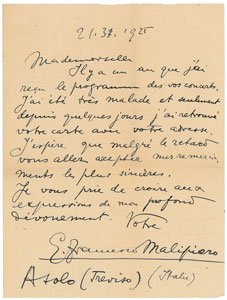 1925
Mademoiselle
Il y a un an que j'ai
reçu le programme des vos concerts.
J'ai été très malade et seulement
depuis quelques jours j'ai retrouvé
votre carte avec votre adresse.
J'espère que malgré le retard
vous allez accepter mes remercie
ments les plus sincères.
Je vous prie de croire aux
expressions de mon profond
dévouement. Votre
G. Francesco Malipiero
Asolo (Treviso) (Italie)